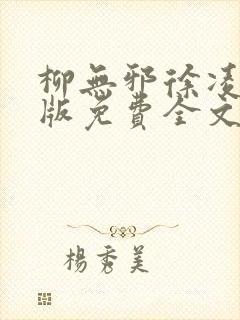 柳無邪徐凌
版免費全文
楊秀美